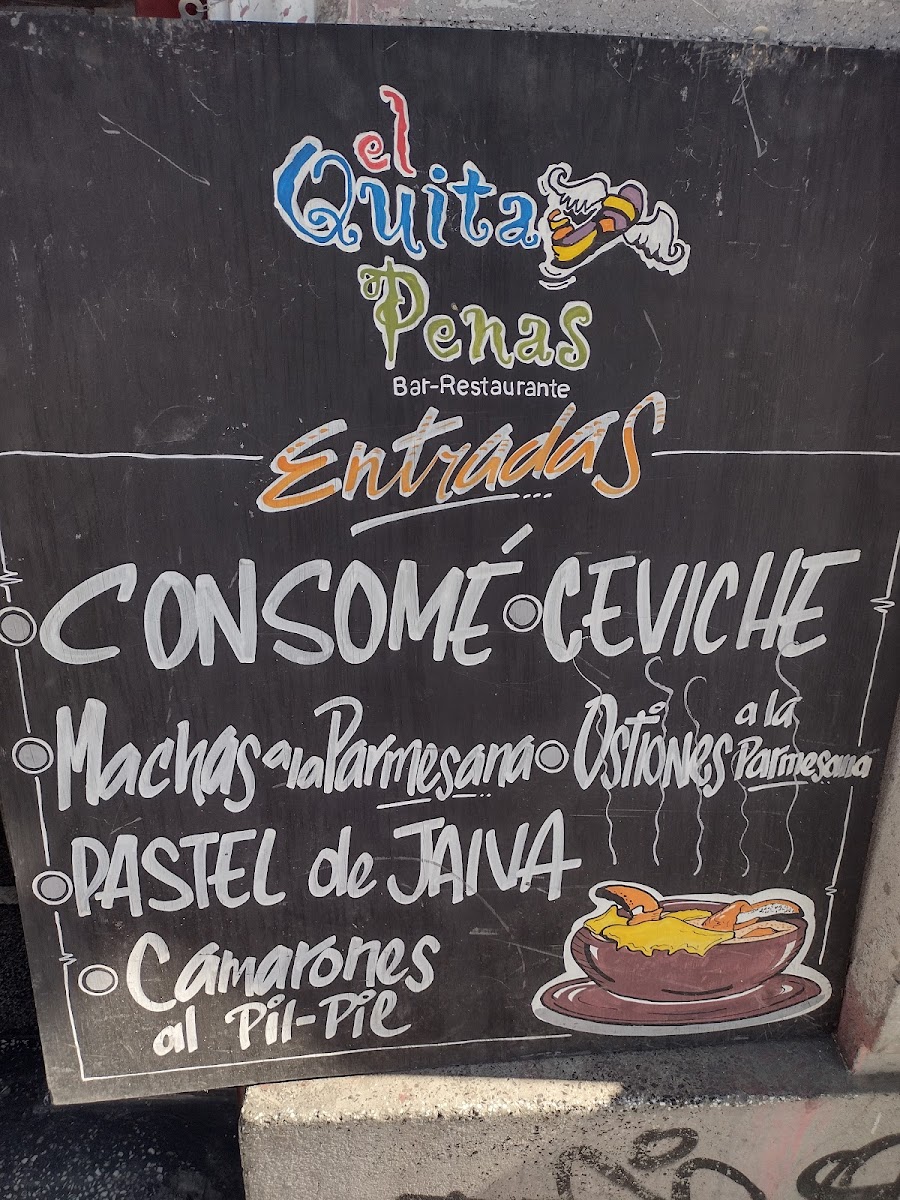 el
Quita
Penas
Bar-Restaurante
Entradas
CONSOMÉ • CEVICHE
Machas a la Parmesana • Ostiones a la Parmesana
PASTEL de JAIVA
Camarones
al Pil-Pil